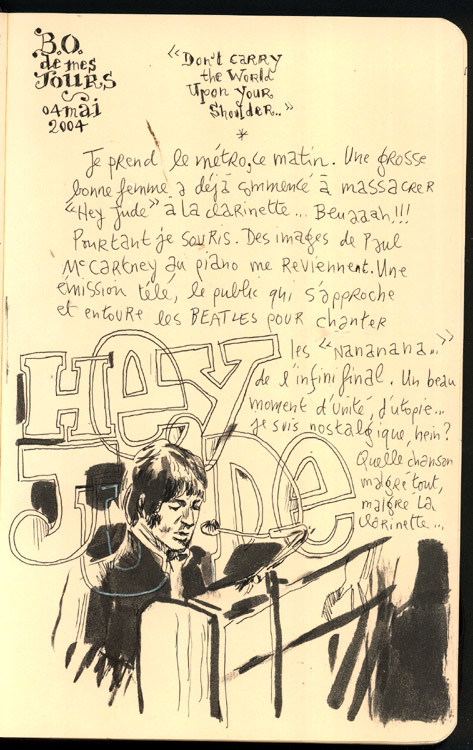 B.O.
de mes
JOURS
04 mai
2004
"Don't CARRY
the World
Upon your
Shoulder.."
*
Je prend le métro, ce matin. Une grosse
bonne femme a déjà commencé à massacrer
"Hey Jude" à la clarinette... Beuaaah!!!
Pourtant je souris. Des images de Paul
McCartney au piano me reviennent. Une
émission télé, le public qui s'approche
et entoure les BEATLES pour chanter
les "Nananana..."
de l'infini final. Un beau
moment d'unité, d'utopie...
je suis nostalgique, hein?
Quelle chanson
malgré tout,
malgré la
clarinette...
HEY
JUDE